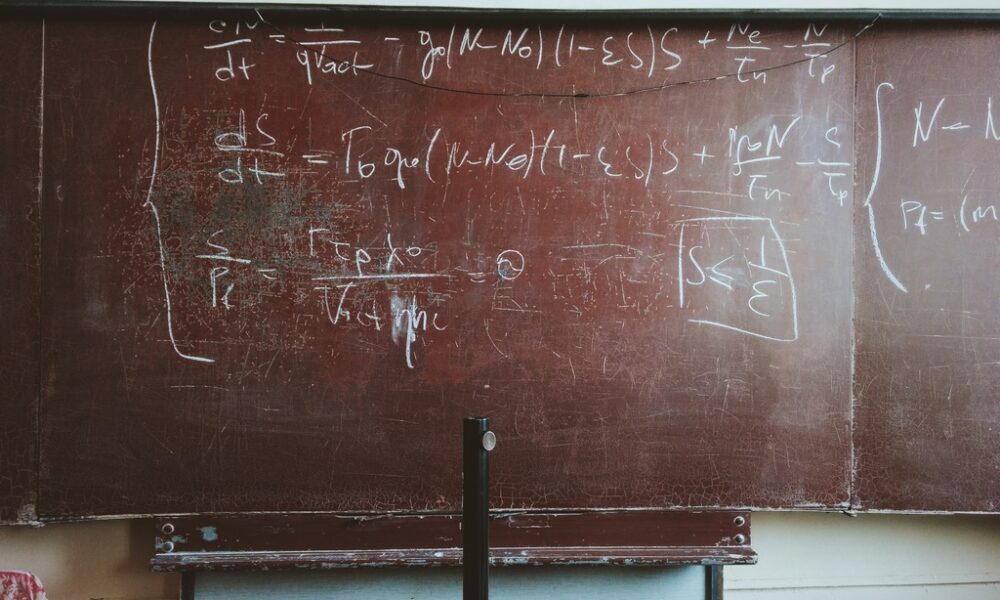 dN/dt = 1/qVact - g₀(N-N₀)(1-εS)S + Ne/τn - N/τp
dS/dt = Γ₀g₀(N-N₀)(1-εS)S + N/τn - S/τp
S/Pf = Γτpλ₀/Vact ηhc = ϑ
S ≤ 1/ε
N - N
Pf = (m